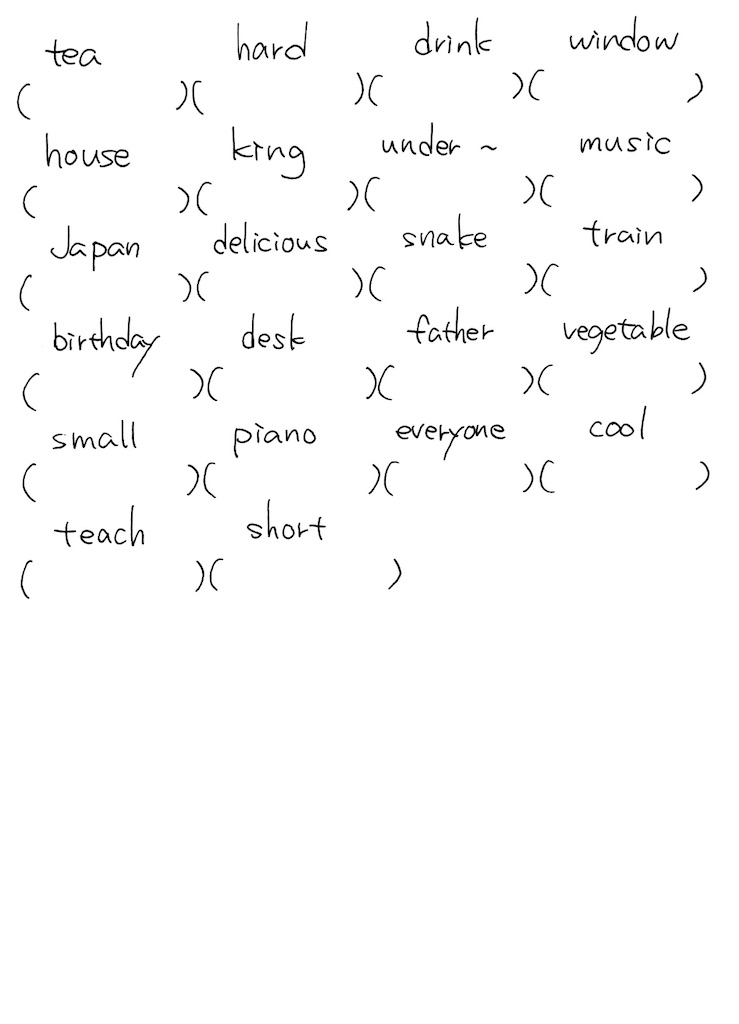 tea hard drink window
( )( )( )( )
house king under ~ music
( )( )( )( )
Japan delicious snake train
( )( )( )( )
birthday desk father vegetable
( )( )( )( )
small piano everyone cool
( )( )( )( )
teach short
( )( )